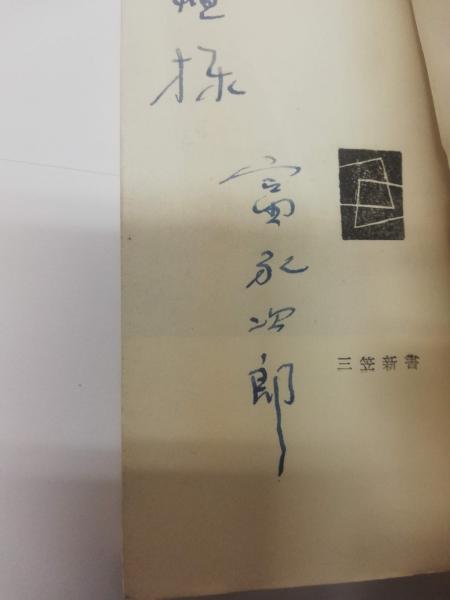 様
富永次郎
三笠新書